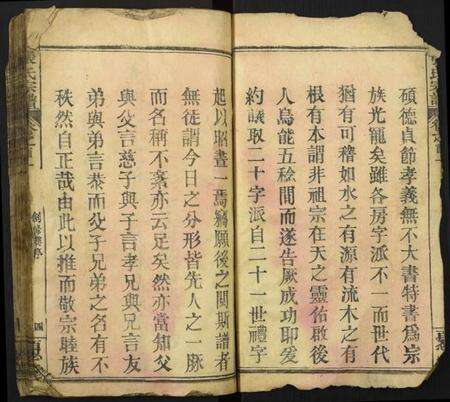 碩德貞節孝義無不大書特書爲宗
族光寵矣雖各房字派不一而世代
猶有可稽如水之有源有流木之有
根有本謂非祖宗在天之靈佑啟後
人烏能五稔間而遂告厥成功耶爰
約議取二十字派自二十一世禮字
起以昭畫一焉竊願後之閱斯譜者
無徒謂今日之分形皆先人之一脈
而名稱不紊亦云足矣然亦當知父
與父言慈子與子言孝兄與兄言友
弟與弟言恭而父子兄弟之名有不
秩然自正哉由此以推而敬宗睦族
氏宗譜
卷之首
四